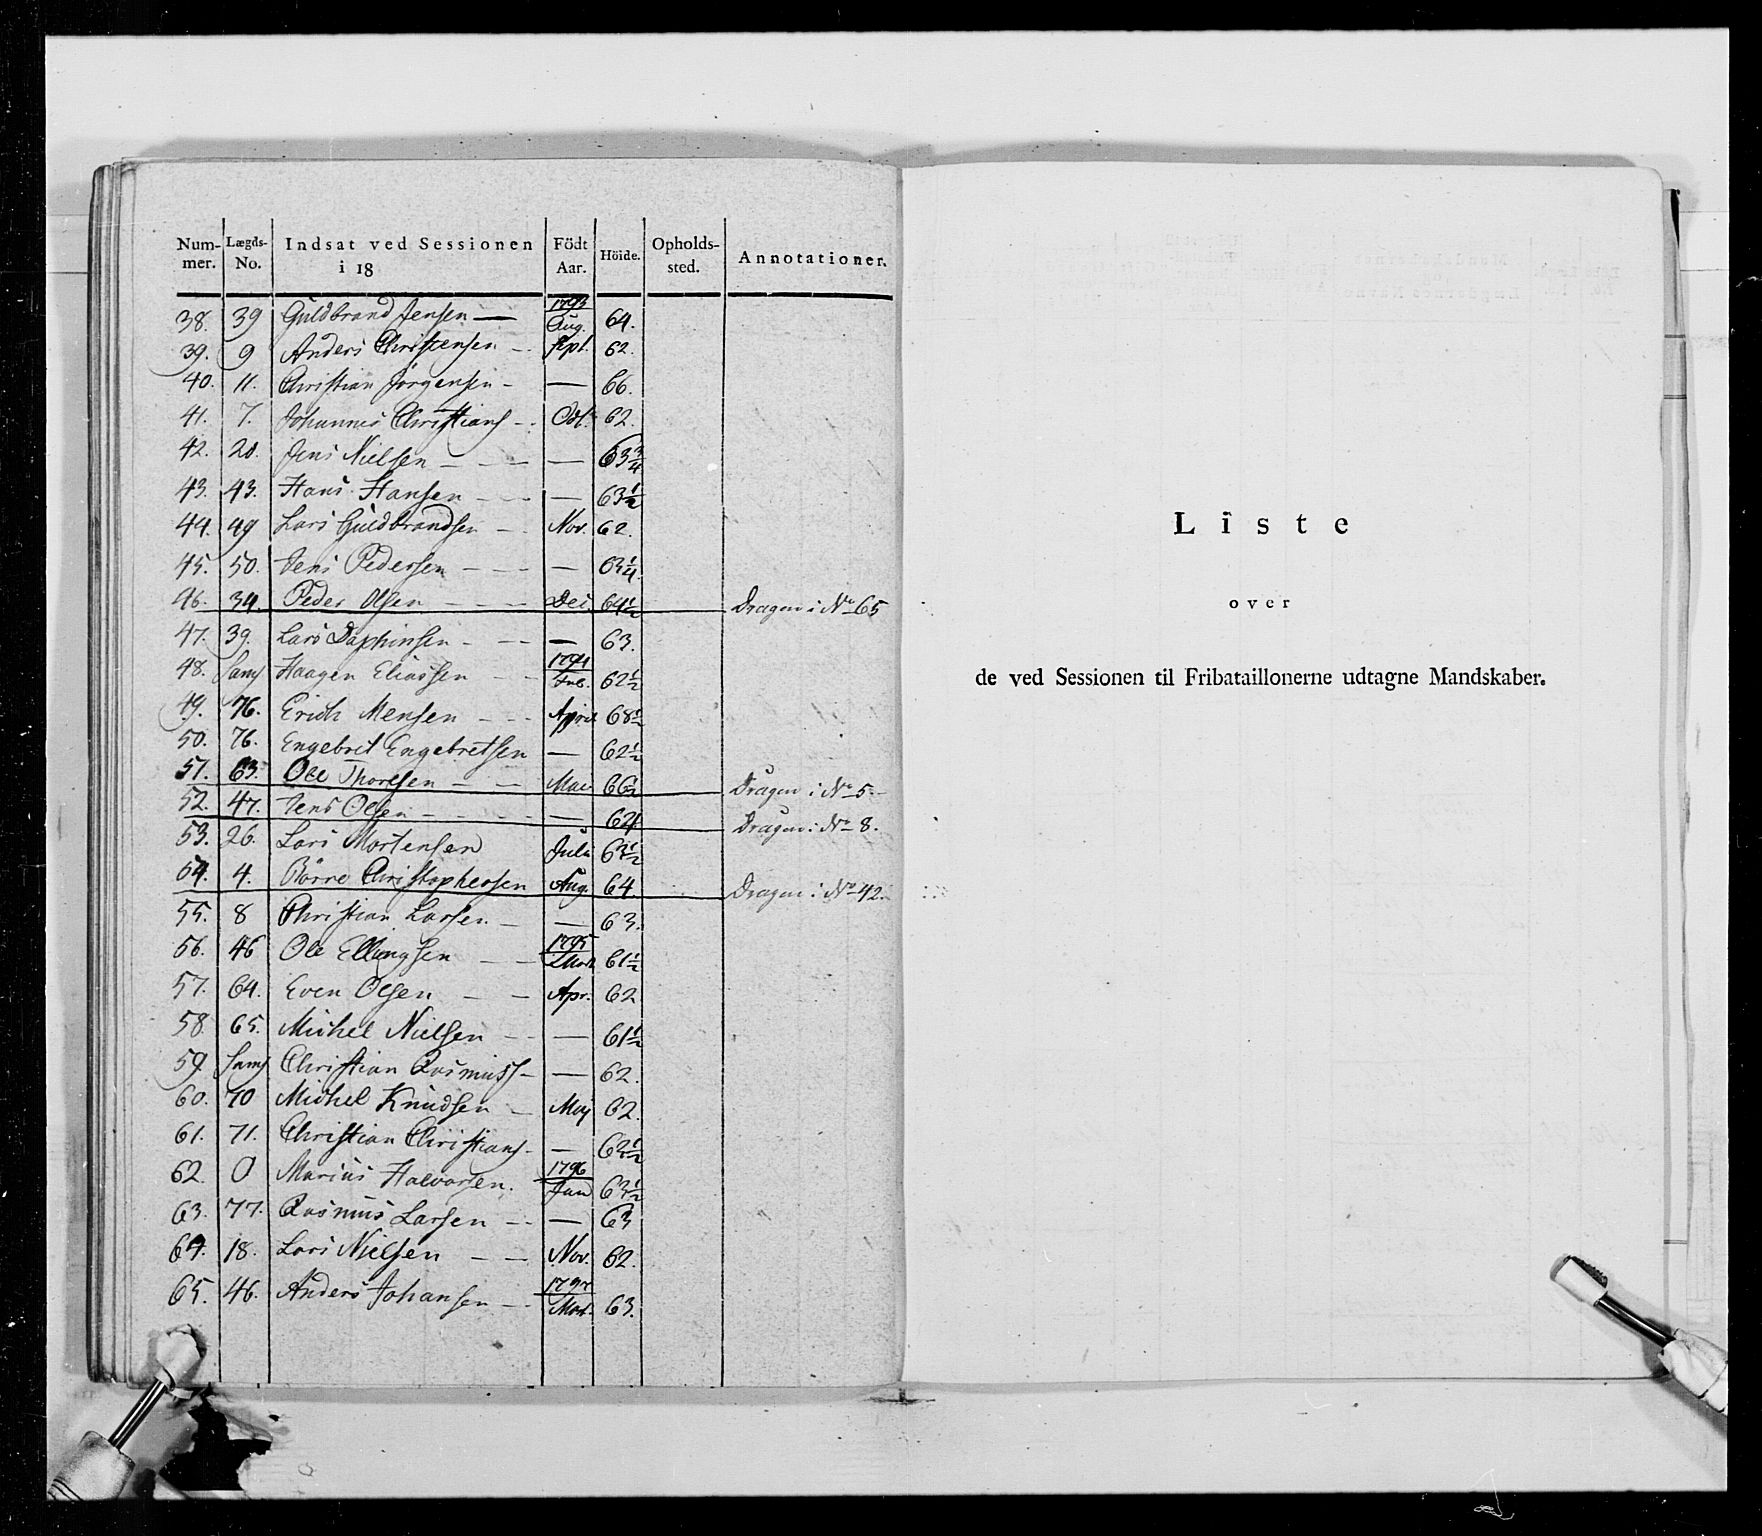 Num- Lægds- Indsat ved Sessionen Födt Höide. Opholds- Annotationer.
mer. No. i 18 Aar. sted.
1793
38. 39 Guldbrand Jensen — Aug. 64.
39. 9 Anders Christensen - Sept. 62.
40. 11. Christian Jørgensen - — 66.
41. 7. Johannes Christians - Oct. 62.
42. 20. Jens Nielsen - — 63 3/4
43. 43. Hans Hansen - — 63 1/2
44. 49 Lars Guldbrandsen - Nov. 62.
45. 50. Jens Pedersen - — 63 1/4
46. 34. Peder Olsen - Dec. 64 1/2 Dragon i No 65
47. 39. Lars - — 63.
1794
48. Sam Haagen Eliassen - Feb. 62 1/2
49. 76. Erich Mensen - April 68 1/2
50. 76. Engebret Engebretsen — 62 1/2
51. 63. Ole Thoresen - Mai 66 1/2 Dragon i No 5.
52. 47. Jens Olsen - — 64 Dragon i No 8.
53. 26. Lars Mortensen Julii 63 1/2
54. 4. Börre Christophersen Aug. 64 Dragon i No 42.
55. 8 Christian Larsen - — 63.
1795
56. 46 Ole Ellingsen - Mart. 61 1/2
57. 64. Even Olsen - Apr. 62
58 65. Michel Nielsen - — 61 1/2
59. Sam Christian Rasmuss - — 62.
60. 70 Michel Knudsen - Maj 62.
61. 71. Christian Christians - — 62 1/2
1796
62. 0 Marius Halvorsen. Jan 63 1/2
63. 77. Rasmus Larsen - — 63
64. 18. Lars Nielsen - Nov. 62.
1797
65. 46. Anders Johansen - Mart. 63.
Liste
over
de ved Sessionen til Fribataillonerne udtagne Mandskaber.